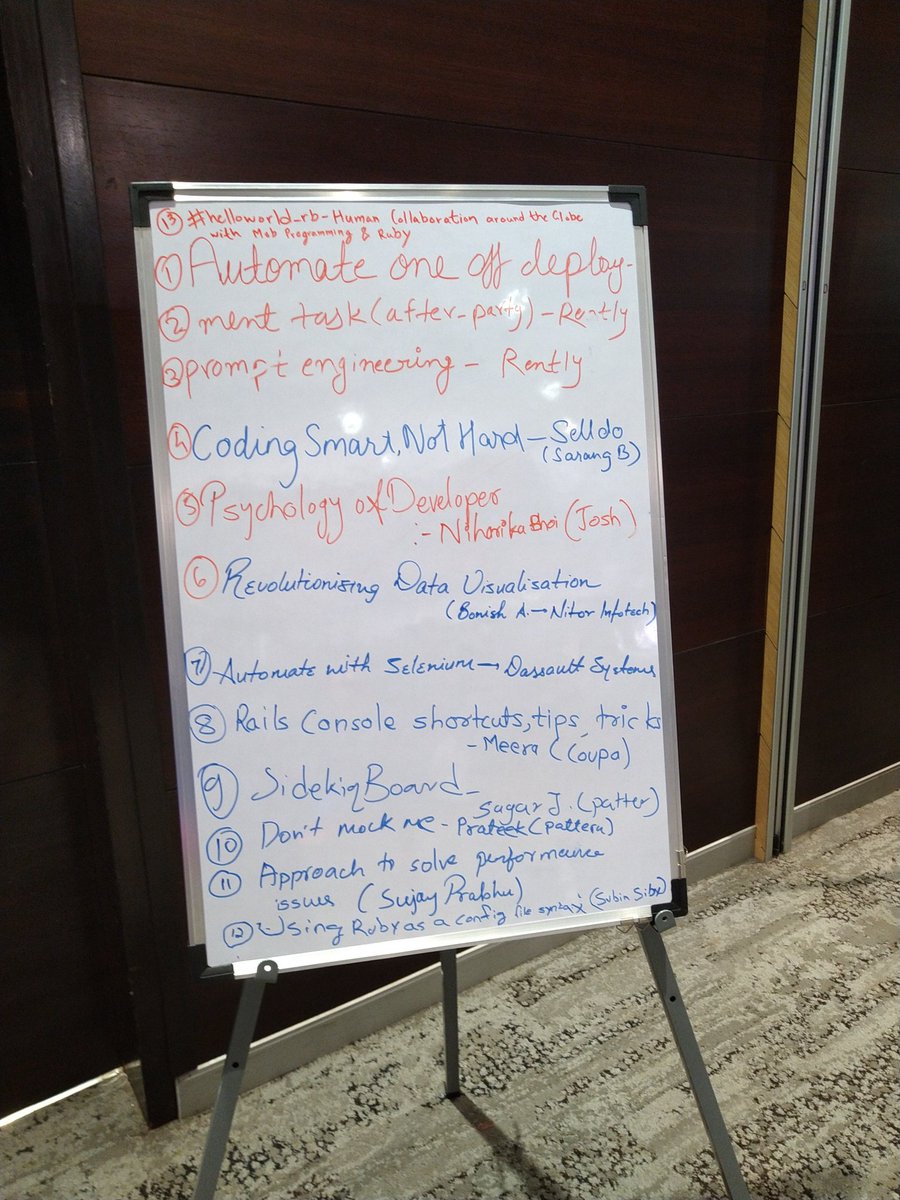 ⑬ #helloworld_rb - Human Collaboration around the Globe
with Mob Programming & Ruby
① Automate one off deploy-
② ment task (after-party) - Rently
③ prompt engineering - Rently
④ Coding Smart, Not Hard - Selldo
(Sarang B)
⑤ Psychology of Developer
:- Niharika Bhoi (Josh)
⑥ Revolutionising Data Visualisation
(Bonish A. → Nitor Infotech)
⑦ Automate with Selenium → Dassault Systems
⑧ Rails Console shortcuts, tips, tricks
- Meera (Coupa)
⑨ Sidekiq Board -
Sagar J. (patter)
⑩ Don't mock me - Prateek (Pattern)
⑪ Approach to solve performance
issues (Sujay Prabhu)
⑫ Using Ruby as a config file syntax (Subin Siby)